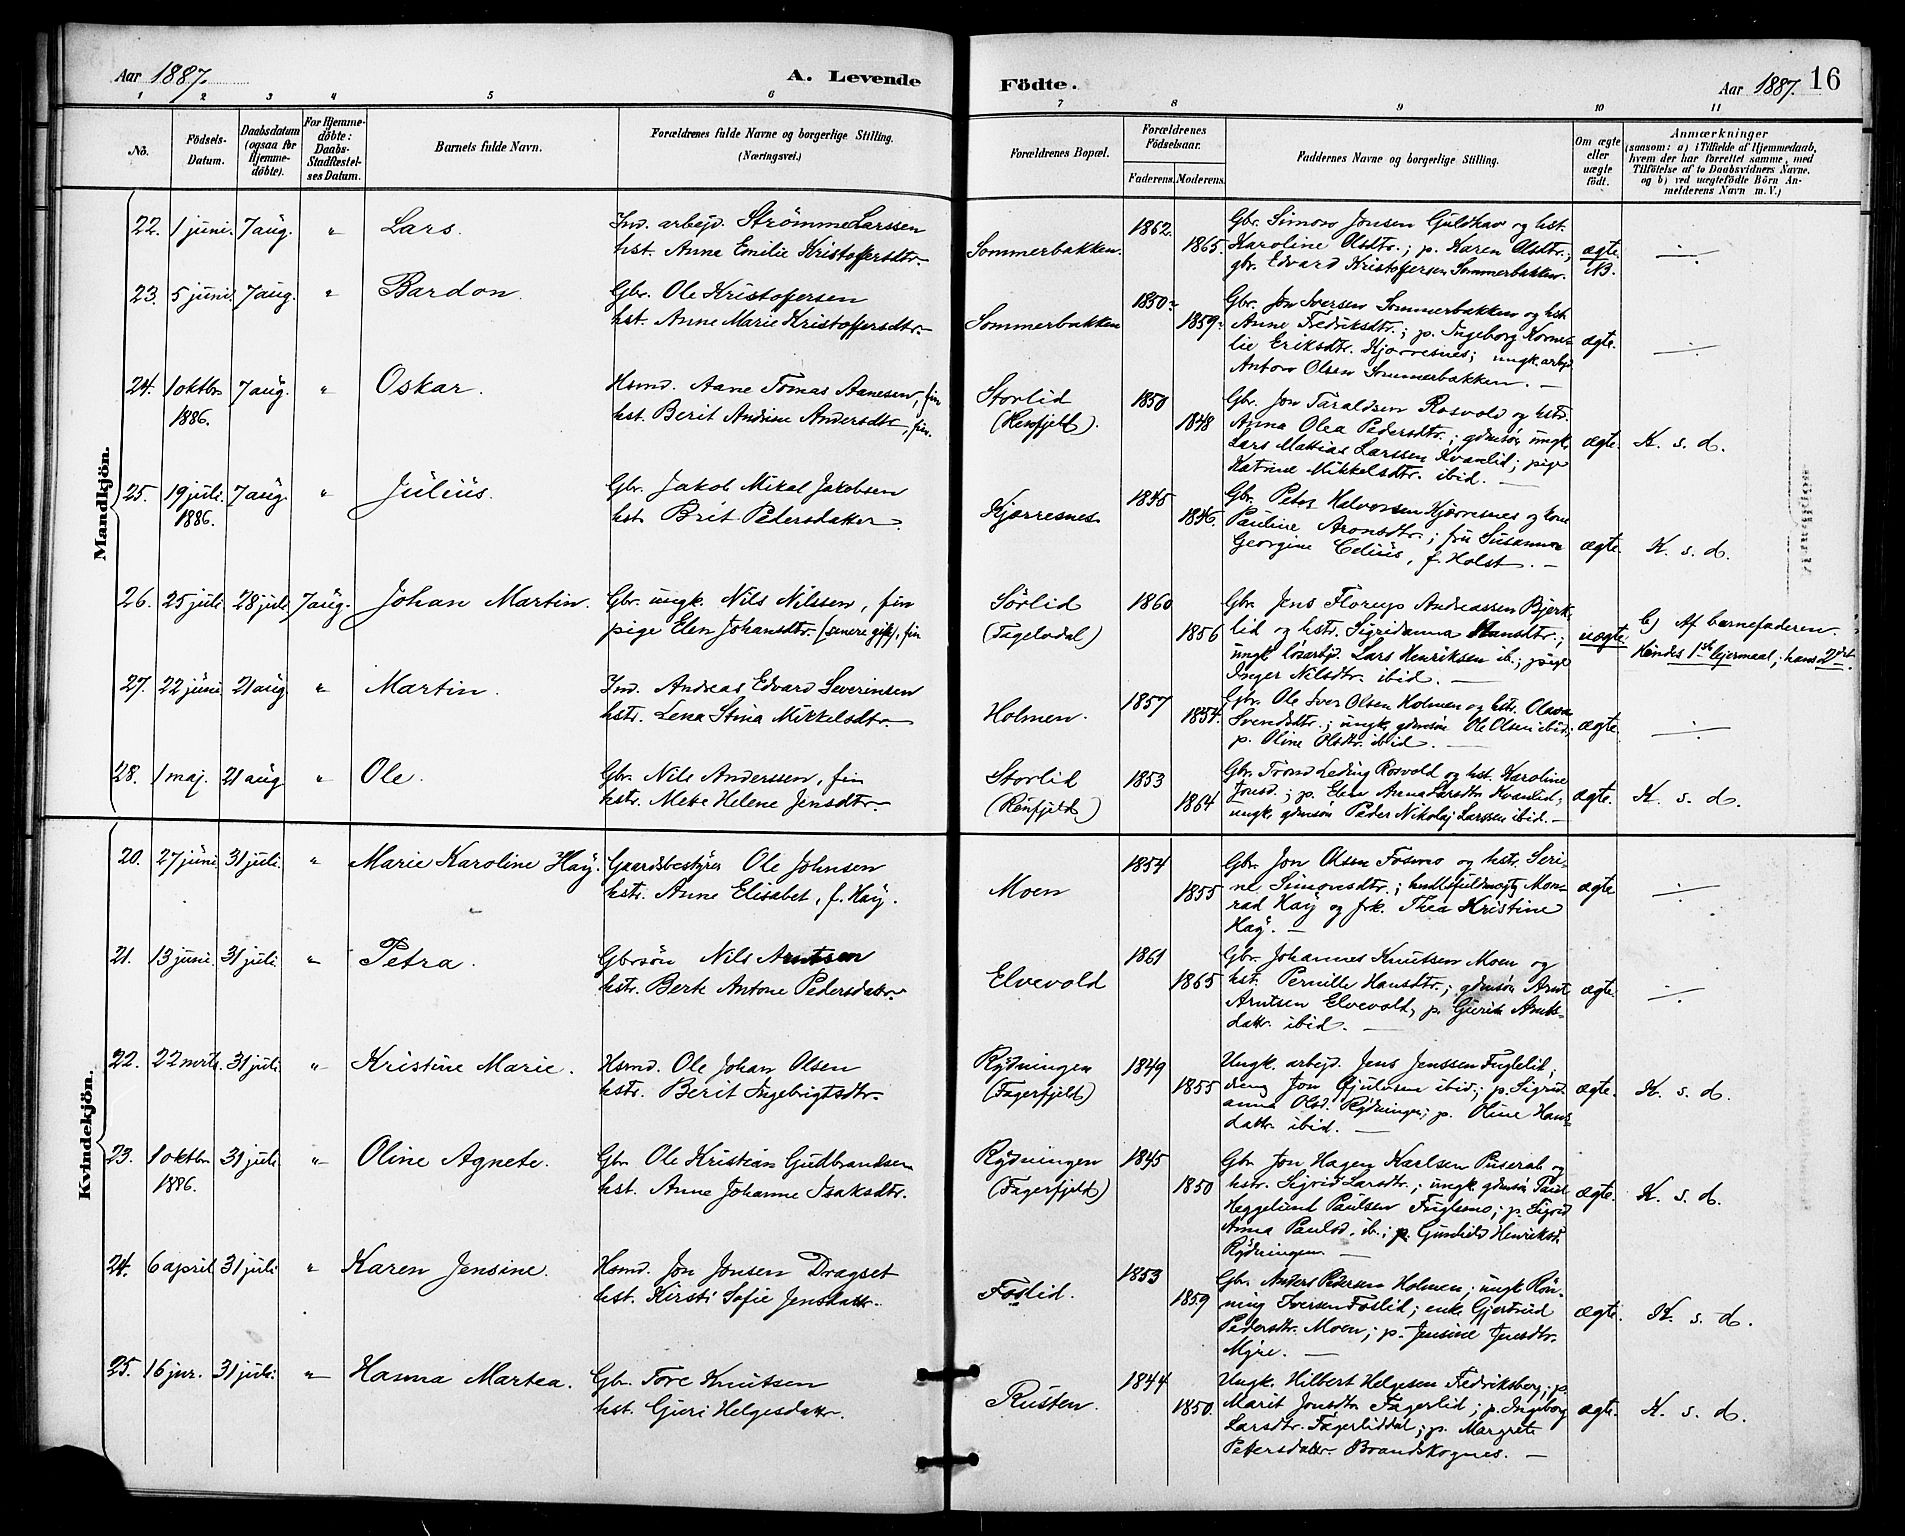 Aar 1887.
A. Levende
Födte.
Aar 1887. 16
1 2 3 4 5 6 7 8 9 10 11
No.
Födsels-Datum.
Daabsdatum (ogsaa for Hjemme-döbte).
For Hjemme-döbte: Daabs-Stadfæstel-ses Datum.
Barnets fulde Navn.
Forældrenes fulde Navne og borgerlige Stilling.
(Næringsvei.)
Forældrenes Bopæl.
Forældrenes Födselsaar.
Faderens. Moderens.
Faddernes Navne og borgerlige Stilling.
Om ægte eller uægte födt.
Anmærkninger
(saasom: a) i Tilfælde af Hjemmedaab,
hvem der har forrettet samme, med
Tilföielse af to Daabsvidners Navne.
og b) ved uægtefödte Börn An-
melderens Navn m. V.)
Mandkjön.
22. 1 juni. 7 aug. " Lars.
Ind. arbejd. Strømme Larssen
hst. Anne Emilie Kristoffersdtr.
Sommerbakken. 1862. 1865.
Gbr. Simon Jonsen Guldhav og hst.
Karoline Olsdtr.; p. Karen Olsdtr.;
gbr. Edvard Kristofersen Sommerbakken.
ægte. NB.
23. 5 juni. 7 aug. " Bardon.
Gbr. Ole Kristofersen
hst. Anne Marie Kristoffersdtr.
Sommerbakken 1850. 1859.
Gbr. Jon Iversen Sommerbakken og hst.
Anne Fredriksdtr.; p. Ingeborg Korne-
lie Eriksdtr. Kjærresnes; ungk. arbjd.
Anton Olsen Sommerbakken. —
ægte.
24. 1 oktbr. 1886. 7 aug. " Oskar.
Hsmd. Aane Tomas Aanesen, fin
hst. Berit Andrine Andersdtr., fin.
Storlid (Renfjeld). 1850 1848
Gbr. Jon Taraldsen Rosvold og hst.
Anna Olea Pedersdtr.; gdmsön ungk.
Lars Mattias Larssen Kvanlid; pige
Katrine Mikkelsdtr. ibid. —
ægte. K. s. d.
25. 19 juli. 1886. 7 aug. " Julius.
Gbr. Jakob Mikal Jakobsen
hst. Brit Pedersdatter.
Kjærresnes 1845 1846.
Gbr. Peter Halvorsen Kjærresnes og kone
Pauline Aronsdtr.; fru Susanna
Georgine Celius, f. Holst. —
ægte. K. s. d.
26. 25 juli. 28 juli. 7 aug. Johan Martin.
Gbr. ungk. Nils Nilssen, fin
pige Elen Johansdtr. (senere gift), fin
Sörlid (Tagelvdal) 1860 1856
Gbr. Jens Florup Andreassen Bjerk-
lid og hstr. Sigridanna Hansdtr.;
ungk. lösarbjd. Lars Henriksen ib.; pige
Inger Nilsdtr. ibid. —
uægte. b) Af barnefaderen.
Hendes 1ste lejermaal; hans 2det.
27. 22 juni 21 aug. " Martin.
Ind. Andreas Edvard Severinsen
hstr. Lena Stina Mikkelsdtr.
Holmen. 1857 1854.
Gbr. Ole Iver Olsen Holmen og hst. Olava
Svendsdtr.; ungk. gdmsön Ole Olsen ibid.;
p. Oline Olsdtr. ibid. —
ægte.
28. 1 maj. 21 aug " Ole.
Gbr. Nils Anderssen, fin
hstr. Mete Helene Jensdtr.
Storlid (Renfjeld) 1853 1864
Gbr. Trond Leding Rosvold og hst. Karoline
Jonsd.; p. Elen Anna Larsdtr. Kvanlid;
ungk. gdmsön Peder Nikolaj Larssen ibid. —
ægte. K. s. d.
Kvindekjön.
20. 27 juni. 31 juli. " Marie Karoline Haÿ.
Gaardsbestyrer Ole Johnsen
hstr. Anne Elisabet, f. Haÿ.
Moen 1854 1855
Gbr. Jon Olsen Fosmo og hstr. Seri-
ne Simonsdtr.; hndlsfuldmægtg Mon-
rad Haÿ og frk. Thea Kristine
Haÿ. —
ægte
21. 13 juni. 31 juli. " Petra.
Gbrsön Nils Arntsen
hstr. Berte Antone Pedersdatr.
Elvevold 1861 1865
Gbr. Johannes Knutsen Moen og
hst. Pernille Hansdtr.; gdmsön Arnt
Arntsen Elvevold, p. Gurid Arnts-
dattr. ibid. —
ægte.
22. 22 marts. 31 juli. " Kristine Marie.
Hsmd. Ole Johan Olsen
hstr. Berit Ingebrigtsdtr.
Rÿdningen (Fagerfjeld) 1849 1855
Ungk. arbejd. Jens Jenssen Fuglelid;
dreng Jon ibid; p. Sigrid-
anna Olsd. Rÿdningen; p. Oline Hans-
dattr. ibid. —
ægte. K. s. d.
23. 1 oktbr. 1886. 31 juli. " Oline Agnete.
Gbr. Ole Kristian Gudbrandsen
hst. Anne Johanne Isaksdtr.
Rÿdningen (Fagerfjeld) 1845 1850
Gbr. Jon Hagen Karlsen Puserab og
hstr. Sigrid Larsdtr.; ungk. gdmsön Paul
Heggelund Paulsen Fuglemo; p. Sigrid
Anna Paulsd. ib.; p. Gunhild Henriksd.
Rÿdningen. —
ægte. K. s. d.
24. 6 april 31 juli " Karen Jensine.
Hsmd. Jon Jonsen Dragset
hst. Kirsti Sofie Jensdattr.
Foslid. 1853 1859
Gbr. Anders Pedersen Holmen; ungk. Rön-
ning Iversen Foslid; enke Gjertrud
Pedersdtr. Moen; p. Jensine Jensdtr.
Mÿre. —
ægte. K. s. d.
25. 16 jnr. 31 juli. " Hanna Martea.
Gbr. Tore Knutsen
hst. Gjuri Helgesdattr.
Rusten. 1844 1850.
Ungk. Hilbert Helgesen Fredriksberg; p.
Marit Jonsdtr. Fagerlid; p. Ingeborg
Larsdtr. Fagerliddal; p. Margrete
Petersdattr. Brandskognes. —
ægte. K. s. d.